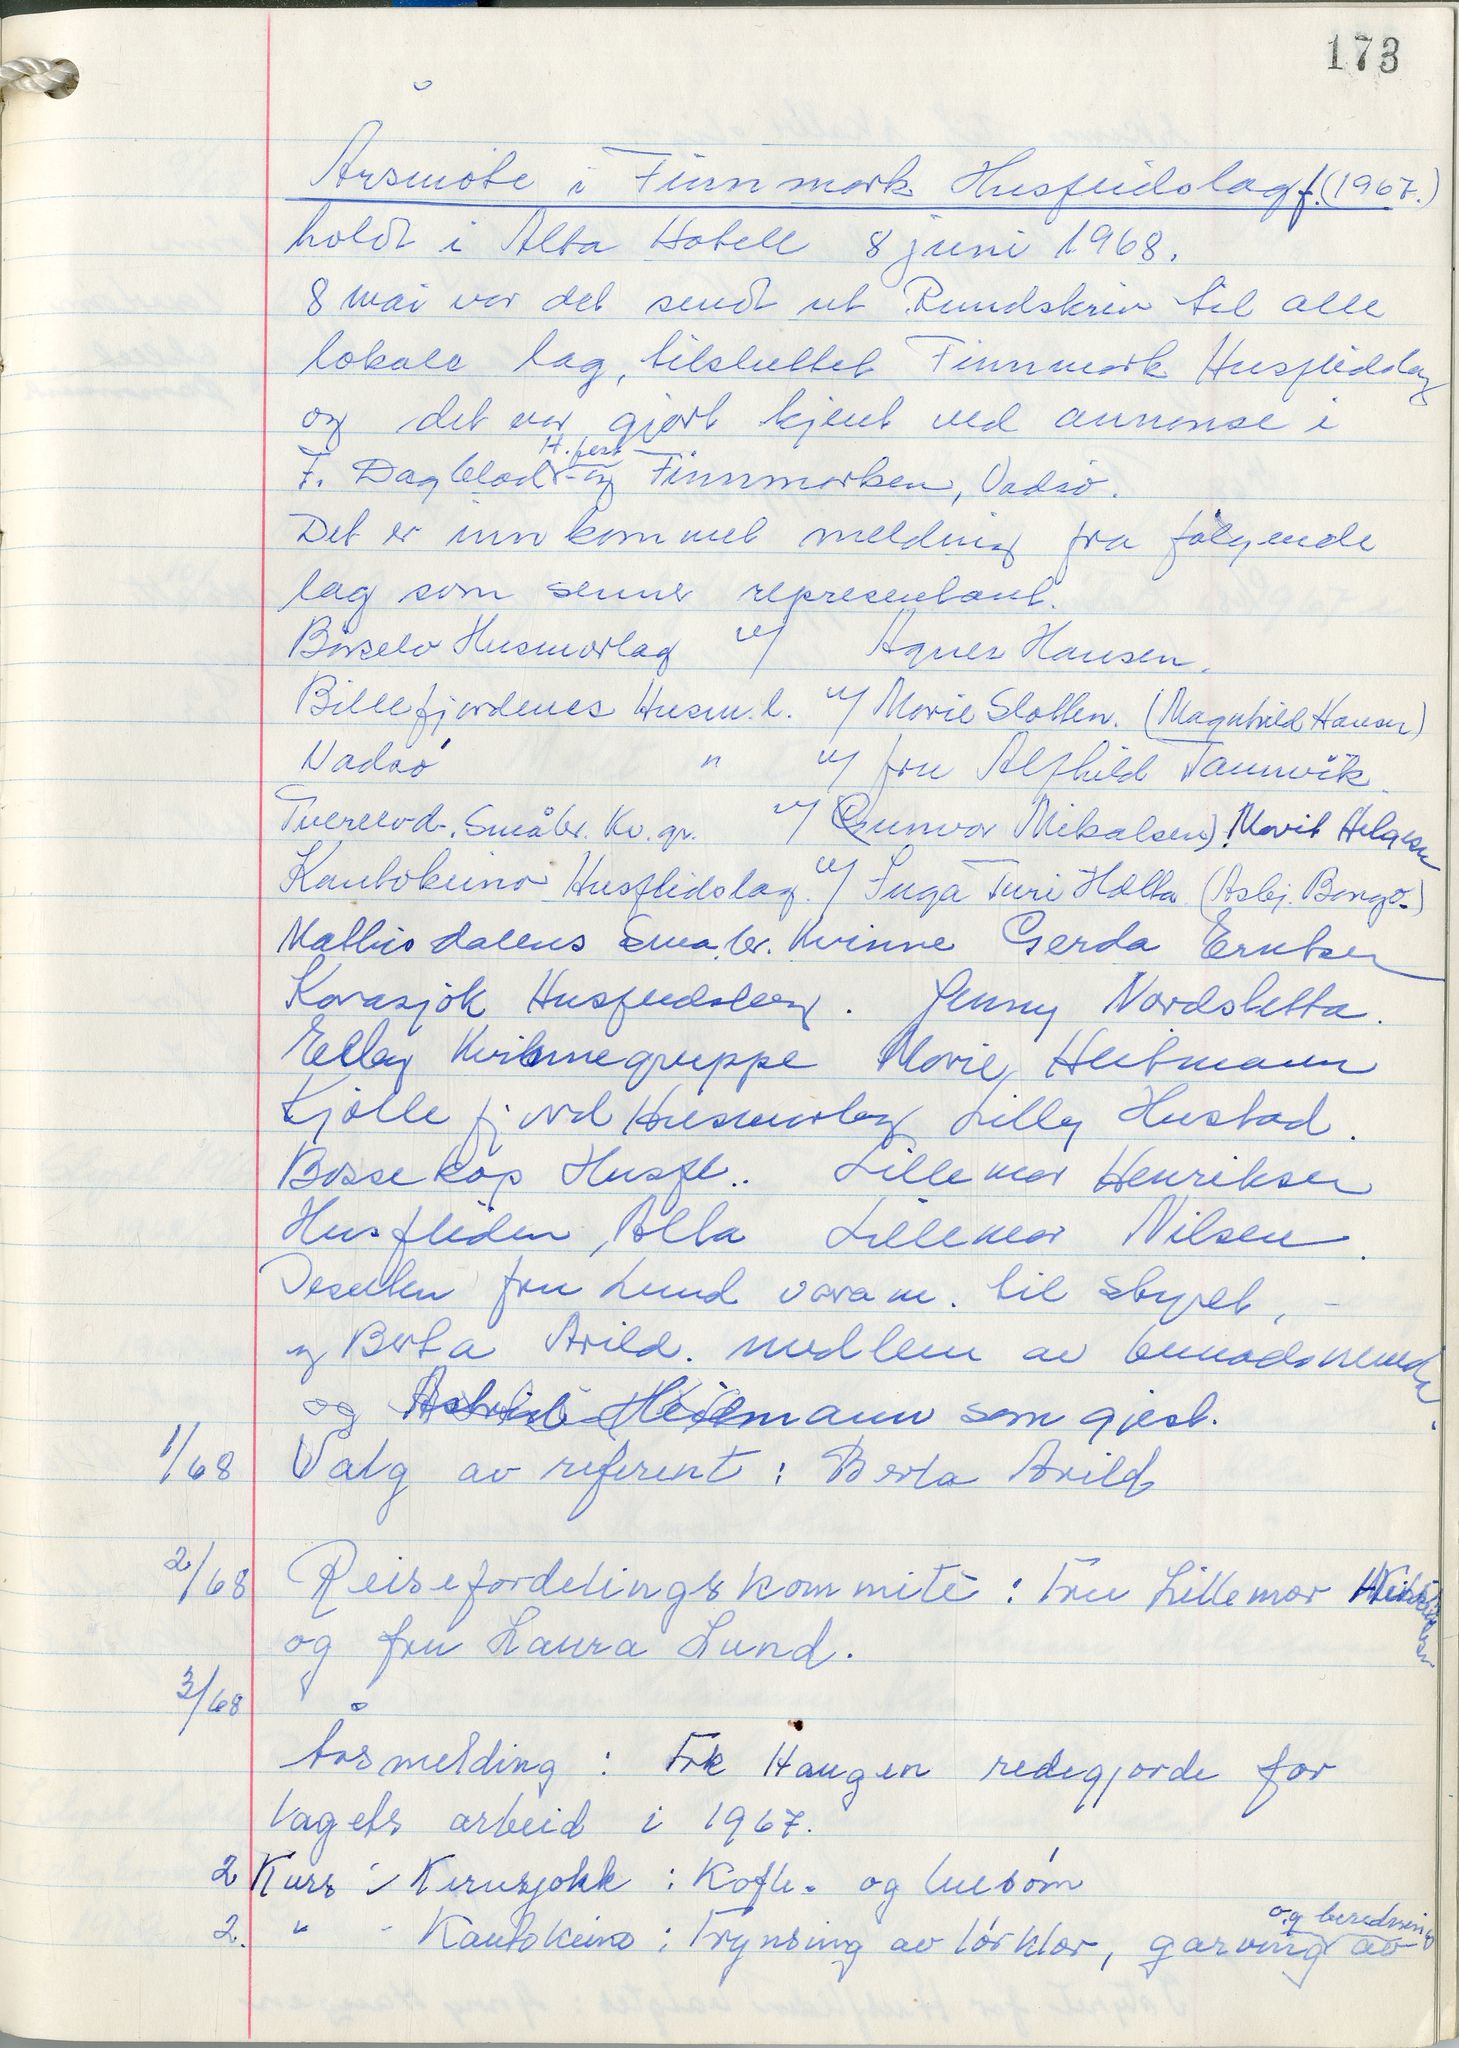 173
Årsmøte i Finnmark Husflidslag f. (1967.)
holdt i Alta Hotell 8 juni 1968.
8 mai var det sendt ut Rundskriv til alle
lokale lag, tilsluttet Finnmark Husflidslag
og det var gjort kjent ved annonse i
F. Dagblad H.fest - og Finnmarken, Vadsø.
Det er innkommet melding fra følgende
lag som senner representant.
Børselv Husmorlag v/ Agnes Hansen.
Billefjordenes Husm.l. v/ Marie Slotten. (Magnhild Hansen)
Vadsø " v/ fru Alfhild Tannvik.
Tverelvd. Småbr. Kv. gr. v/ (Gunvor Mikalsen) Marit Helgesen
Kautokeino Husflidslag v/ Inga Turi Hætta (Asbj. Bongo.)
Mathisdalens Småbr. Kvinne Gerda Erntsen
Karasjok Husflidslag. Jenny Nordsletta.
Elby Kvinnegruppe Marie Heitmann
Kjøllefjord Husmorlag Lilly Hustad.
Bossekop Husfl.. Lillemor Henriksen
Husfliden, Alta Lillemor Nilsen.
Desuten fru Lund varam. til styret, -
og Berta Arild. medlem av bunadsnemda.
og Astrid Heitmann som gjest.
1/68 Valg av referent : Berta Arild
2/68 Reisefordelingskommité : Fru Lillemor
og fru Laura Lund.
3/68
Årsmelding : Frk Haugen redegjorde for
lagets arbeid i 1967.
2 Kurs i Karasjokk : Kofte- og luesøm
2. " - Kautokeino : Frynsing av tørklær, garving og beredning av